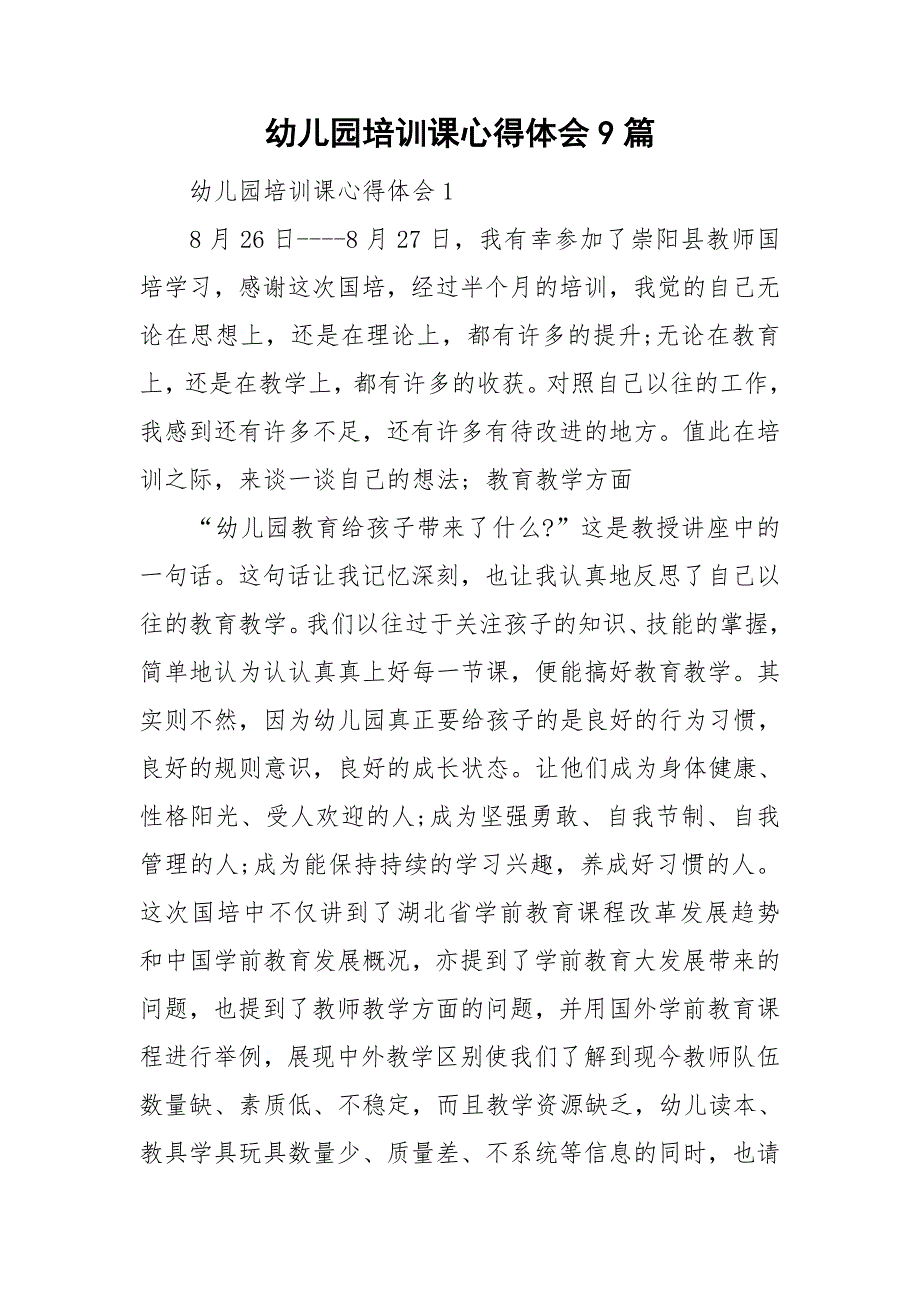 幼儿园培训课心得体会9篇
幼儿园培训课心得体会1
8月26日----8月27日，我有幸参加了崇阳县教师国
培学习，感谢这次国培，经过半个月的培训，我觉的自己无
论在思想上，还是在理论上，都有许多的提升;无论在教育
上，还是在教学上，都有许多的收获。对照自己以往的工作，
我感到还有许多不足，还有许多有待改进的地方。值此在培
训之际，来谈一谈自己的想法; 教育教学方面
“幼儿园教育给孩子带来了什么?”这是教授讲座中的
一句话。这句话让我记忆深刻，也让我认真地反思了自己以
往的教育教学。我们以往过于关注孩子的知识、技能的掌握，
简单地认为认认真真上好每一节课，便能搞好教育教学。其
实则不然，因为幼儿园真正要给孩子的是良好的行为习惯，
良好的规则意识，良好的成长状态。让他们成为身体健康、
性格阳光、受人欢迎的人;成为坚强勇敢、自我节制、自我
管理的人;成为能保持持续的学习兴趣，养成好习惯的人。
这次国培中不仅讲到了湖北省学前教育课程改革发展趋势
和中国学前教育发展概况，亦提到了学前教育大发展带来的
问题，也提到了教师教学方面的问题，并用国外学前教育课
程进行举例，展现中外教学区别使我们了解到现今教师队伍
数量缺、素质低、不稳定，而且教学资源缺乏，幼儿读本、
教具学具玩具数量少、质量差、不系统等信息的同时，也请